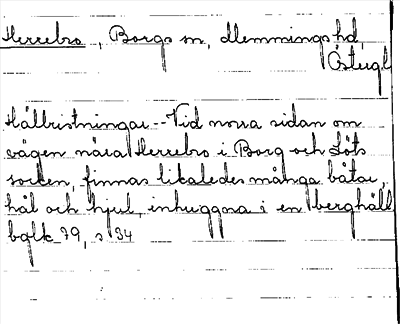 Herrebro, Borgs sn, Memmings hd,
Östergl
Hällristningar. - Vid norra sidan om
vägen nära Herrebro i Borg och Löts
socken, finnas likaledes många båtar,
hål och hjul, inhuggna i en berghäll
bglk 79, s 34